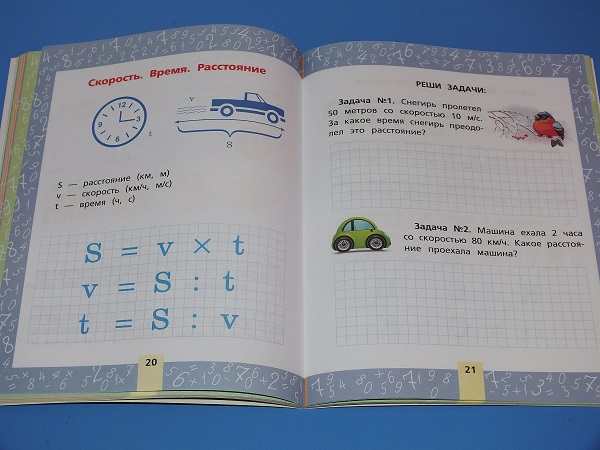 Скорость. Время. Расстояние
12
3
6
9
v
t
S
S — расстояние (км, м)
v — скорость (км/ч, м/с)
t — время (ч, с)
S = v × t
v = S : t
t = S : v
20
РЕШИ ЗАДАЧИ:
Задача №1. Снегирь пролетел
50 метров со скоростью 10 м/с.
За какое время снегирь преодо-
лел это расстояние?
Задача №2. Машина ехала 2 часа
со скоростью 80 км/ч. Какое расстоя-
ние проехала машина?
21